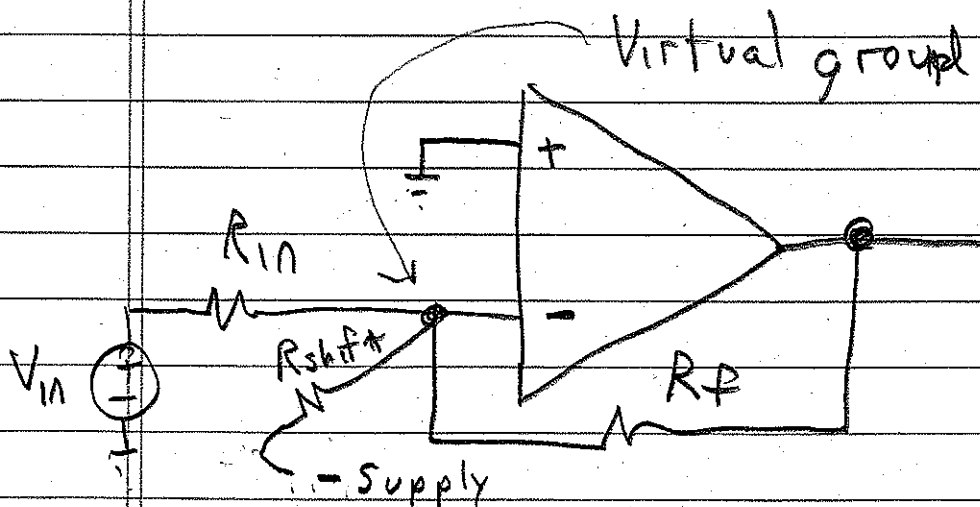 Virtual ground
+
Rin
-
Rshift
Vin
+
-
Rf
- Supply